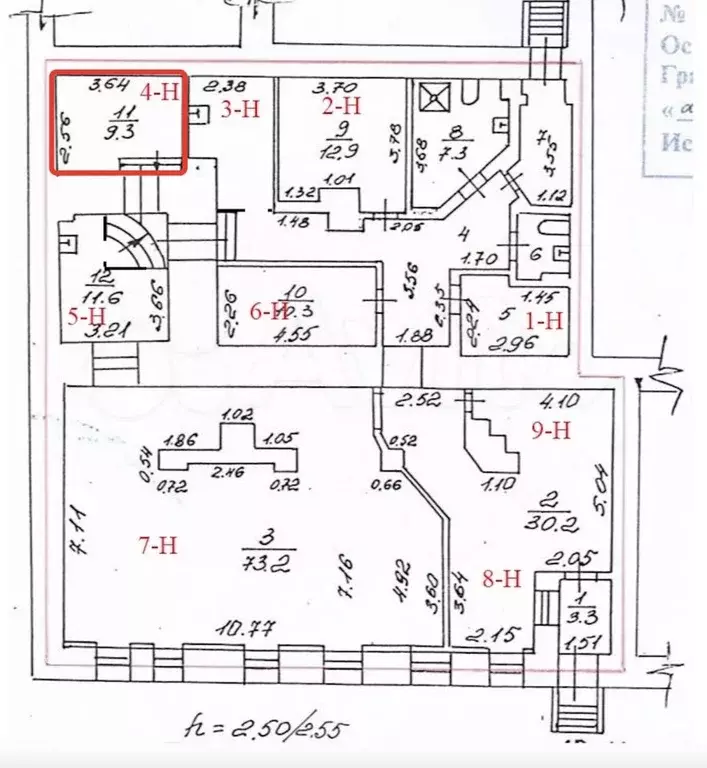 №
Ос
Гра
« а
Ис
3.64
4-Н
2.38
3-Н
3.70
2-Н
11
9.3
2.56
9
12.9
3.78
8
7.3
3.68
7
3.53
1.12
1.01
1.32
1.48
2.05
4
1.70
6
12
11.6
3.66
5-Н
3.21
2.26
10
6-Н
4.55
3.56
2.35
1.88
1.45
5
1-Н
2.24
2.96
2.52
4.10
9-Н
1.02
1.86
1.05
0.54
0.72
2.46
0.72
0.52
0.66
1.10
2
30.2
5.04
7.11
7-Н
3
73.2
7.16
4.92
3.60
3.64
8-Н
2.05
1
3.3
1.51
2.15
10.77
h = 2.50/2.55